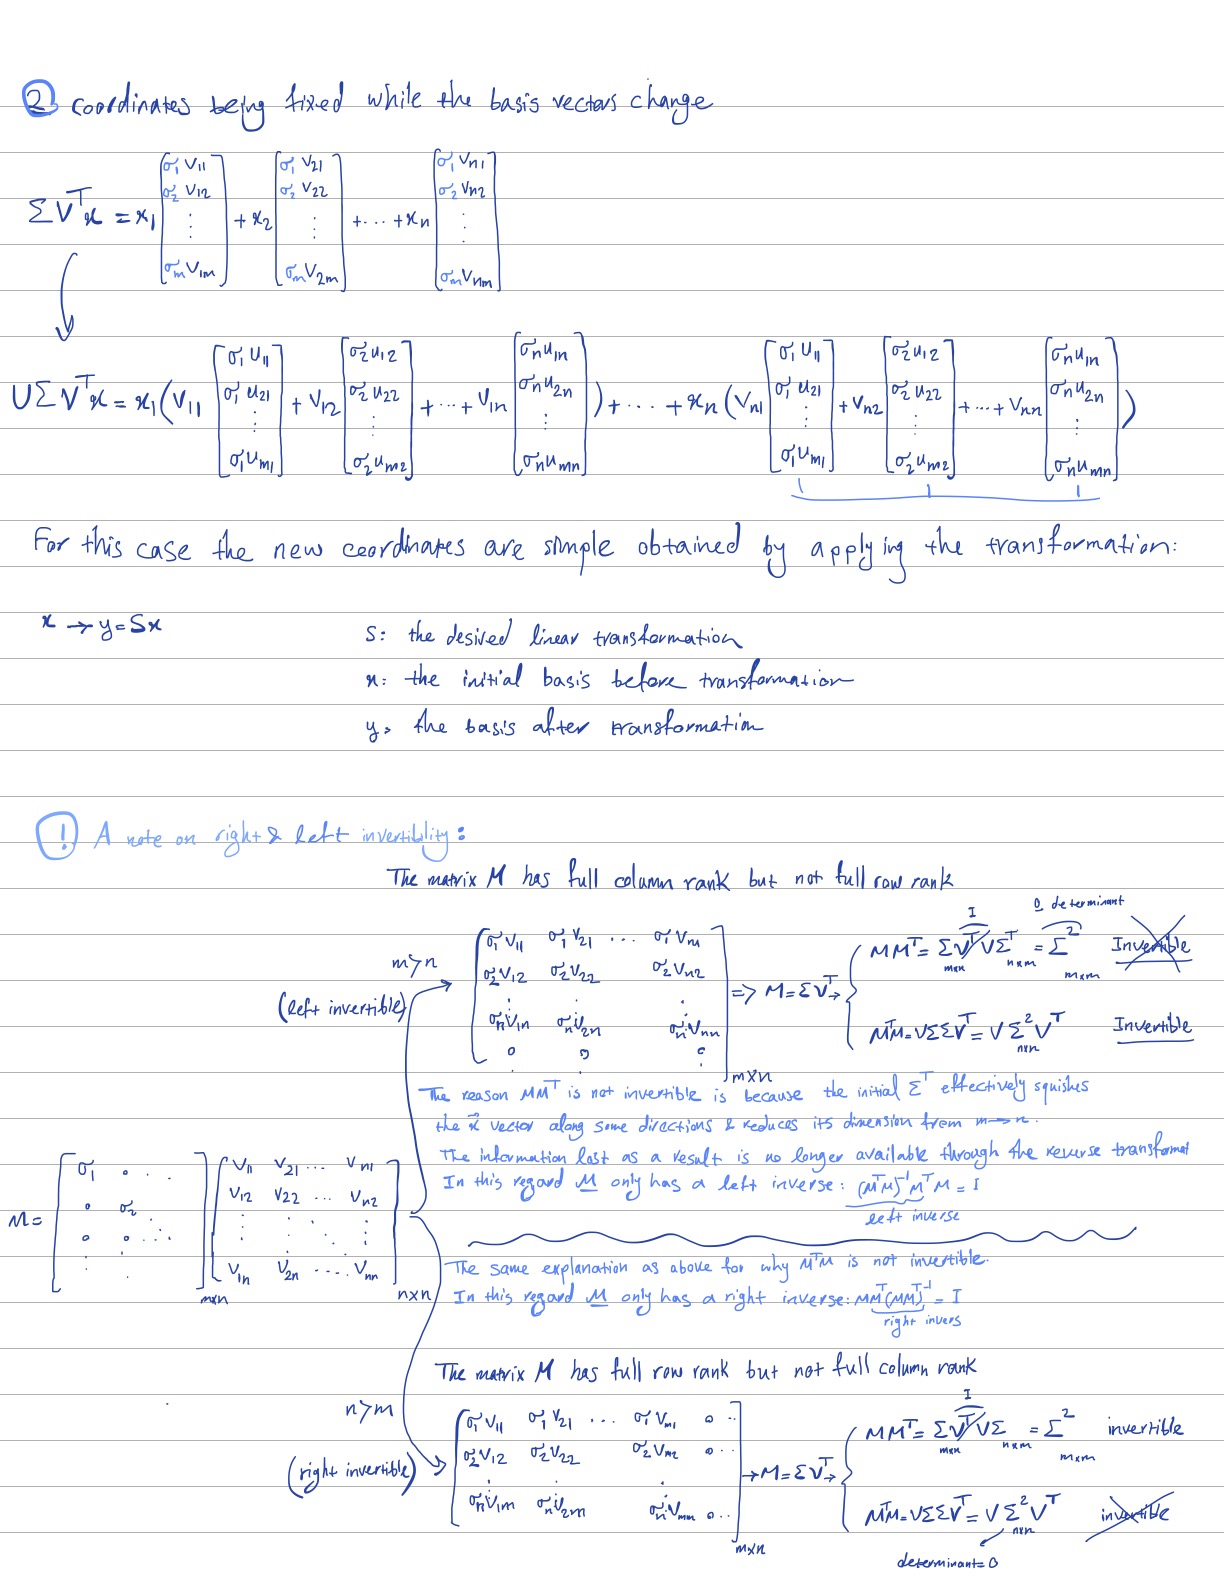 ② coordinates being fixed while the basis vectors change
ΣVᵀx = x₁ [σ₁V₁₁ σ₂V₁₂ ⋮ σₘV₁ₘ] + x₂ [σ₁V₂₁ σ₂V₂₂ ⋮ σₘV₂ₘ] + ... + xₙ [σ₁Vₙ₁ σ₂Vₙ₂ ⋮ σₘVₙₘ]
UΣVᵀx = x₁ (V₁₁ [σ₁u₁₁ σ₁u₂₁ ⋮ σ₁uₘ₁] + V₁₂ [σ₂u₁₂ σ₂u₂₂ ⋮ σ₂uₘ₂] + ... + V₁ₙ [σₙu₁ₙ σₙu₂ₙ ⋮ σₙuₘₙ]) + ... + xₙ (Vₙ₁ [σ₁u₁₁ σ₁u₂₁ ⋮ σ₁uₘ₁] + Vₙ₂ [σ₂u₁₂ σ₂u₂₂ ⋮ σ₂uₘ₂] + ... + Vₙₙ [σₙu₁ₙ σₙu₂ₙ ⋮ σₙuₘₙ])
For this case the new coordinates are simple obtained by applying the transformation:
x → y = Sx
S: the desired linear transformation
x: the initial basis before transformation
y: the basis after transformation
! A note on right & left invertiblity:
The matrix M has full column rank but not full row rank
m>n
(left invertible)
[σ₁V₁₁ σ₁V₂₁ ... σ₁Vₙ₁
σ₂V₁₂ σ₂V₂₂ σ₂Vₙ₂
⋮
σₙV₁ₙ σₙV₂ₙ σₙVₙₙ
0 0 0] m×n
=> M = ΣVᵀ →
I
0 determinant
MMᵀ = ΣVᵀVΣᵀ = Σ² Invertible
m×n n×m m×m
MᵀM = VΣΣVᵀ = VΣ²Vᵀ Invertible
n×n
The reason MMᵀ is not invertible is because the initial Σᵀ effectively squishes
the x⃗ vector along some directions & reduces its dimension from m→n.
The information lost as a result is no longer available through the reverse transformat
In this regard M only has a left inverse: (MᵀM)⁻¹MᵀM = I
left inverse
M = [σ₁ 0 · ·
0 σ₂
0 0 ...] m×n
[V₁₁ V₂₁ ... Vₙ₁
V₁₂ V₂₂ ... Vₙ₂
⋮
V₁ₙ V₂ₙ .... Vₙₙ] n×n
The same explanation as above for why MᵀM is not invertible.
In this regard M only has a right inverse: MMᵀ(MMᵀ)⁻¹ = I
right invers
The matrix M has full row rank but not full column rank
n>m
(right invertible)
[σ₁V₁₁ σ₁V₂₁ ... σ₁Vₘ₁ 0 ..
σ₂V₁₂ σ₂V₂₂ σ₂Vₘ₂ 0 ..
⋮
σₙV₁ₘ σₙV₂ₘ σₙVₘₘ 0 ..] m×n
→ M = ΣVᵀ →
I
MMᵀ = ΣVᵀVΣ = Σ² invertible
m×n n×m m×m
MᵀM = VΣΣVᵀ = VΣ²Vᵀ invertible
n×n
determinant = 0